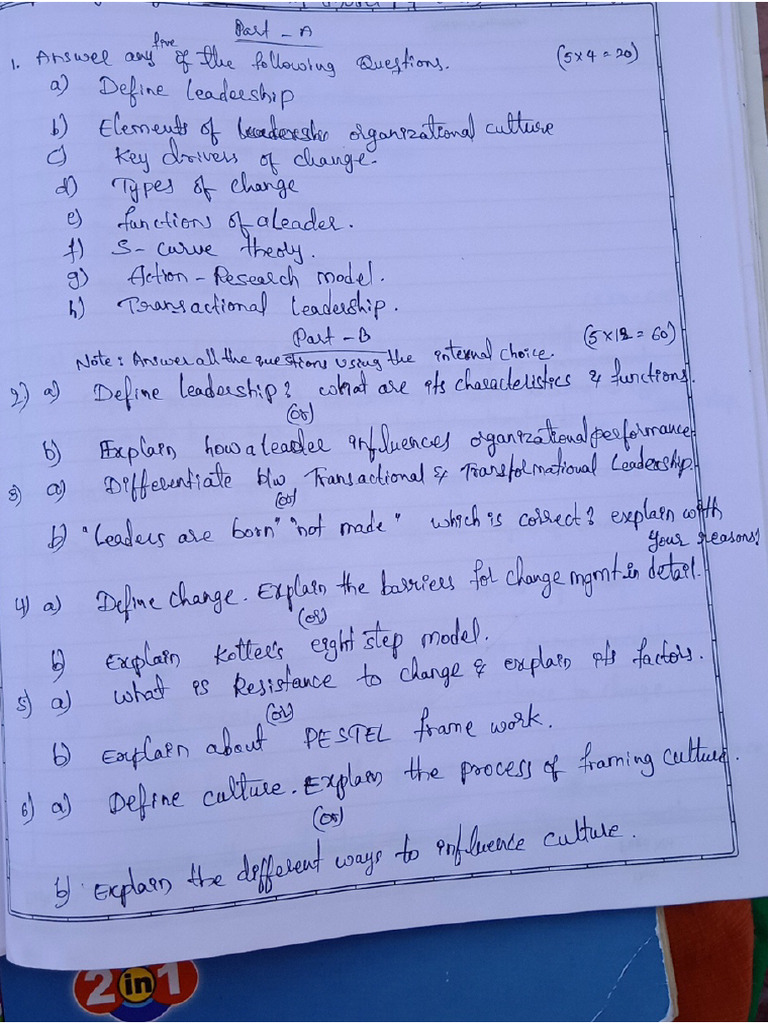 Part - A
1. Answer any five of the following Questions. (5x4=20)
a) Define Leadership
b) Elements of organizational culture
c) Key drivers of change.
d) Types of change
e) functions of a Leader.
f) S- curve theory.
g) Action - Research model.
h) Transactional Leadership.
Part - B
Note: Answer all the questions using the internal choice. (5x12=60)
2) a) Define leadership? what are its characteristics & functions.
(or)
b) Explain how a leader influences organizational performance
3) a) Differentiate b/w Transactional & Transformational Leadership
(or)
b) "Leaders are born" "not made" which is correct? explain with
your reasons?
4) a) Define change. Explain the barriers for change mgmt in detail.
(or)
b) Explain Kotter's eight step model.
5) a) what is Resistance to change & explain its factors.
(or)
b) Explain about PESTEL frame work.
6) a) Define culture. Explain the process of framing culture.
(or)
b) Explain the different ways to influence culture.
2 in 1